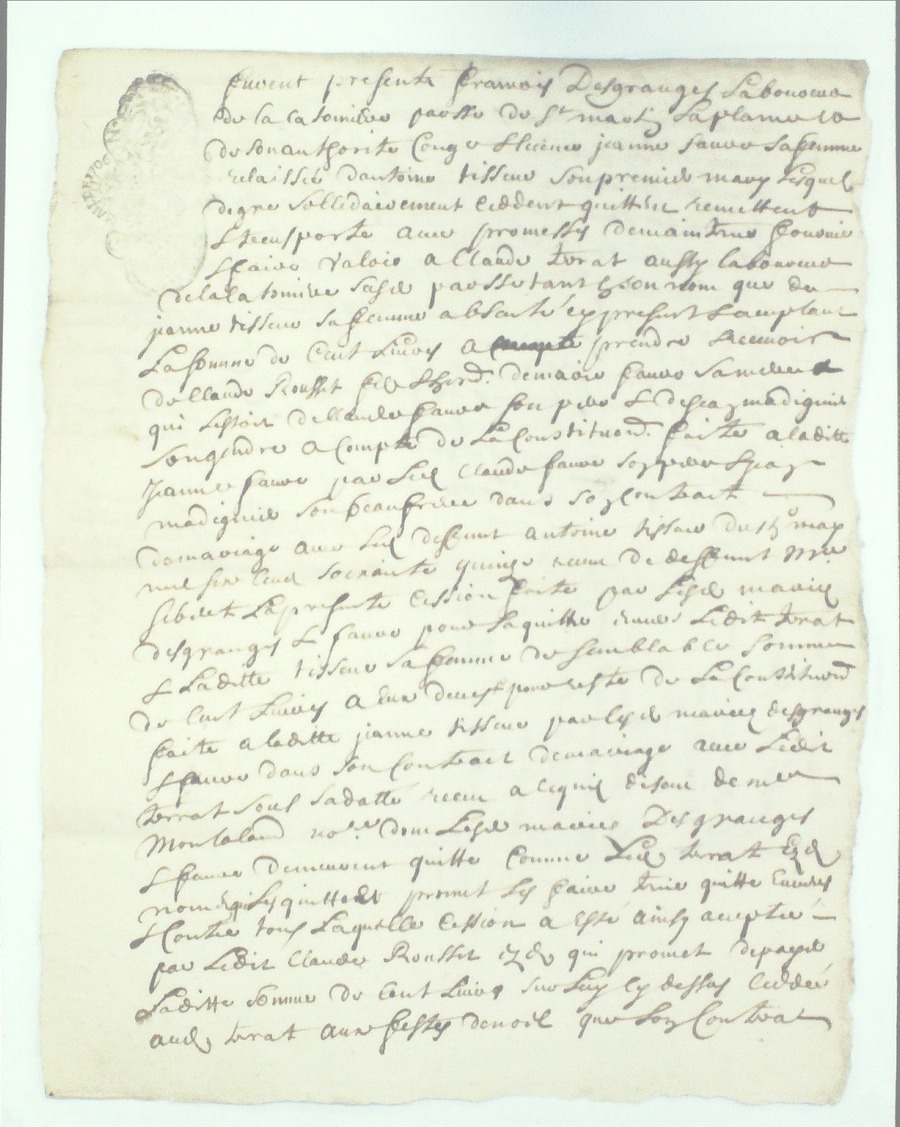 furent presents francois Desgranges Laboureur
de la Catoniere parsse de St marti Laplaine et
de son authorité Conge & licence jeanne faure sa femme
relaissée d'antoine tisseur son premier mary Lesquels
de gre sollidairement ceddent quittent remettent
& transporte avec promesses de maintenir fournir
& faire valoir a Claude terrat aussy laboureur
de la Catoniere susd parsse tant en son nom que de
jeanne tisseur sa femme absante icy present & acceptant
La somme de Cent Livres a prendre & recevoir
de Claude Rousset fils & herd. de marie faure sa mere
qui Lestoit de Claude faure son pere & de jean madignier
son gendre a Compte de La Constituon. faite a laditte
Jeanne faure par Led Claude faure son pere & jean
madignier son beaufrere dans son Contract
de mariage avec led deffunt antoine tisseur du may
mil six Cent soixante quinze receu de deffunt Me
Gibert La presente Cession faite par Lesd mariez
desgranges & faure pour sa quitter envers Ledit terrat
& Laditte tisseur sa femme de semblable somme
de Cent Livres a Eux deues pour reste de La Constituon
faite a laditte jeanne tisseur par lesd mariez desgranges
& faure dans son Contract de mariage avec Ledit
terrat sous sa datte receu a ce quils disent de me
Montaland nore. dont Lesd mariez Desgranges
& faure demeurent quitte Comme Led terrat Esd
noms Les quitte & promet Les faire tenir quitte Envers
& Contre tous Laquelle Cession a Esté ainsy acceptée
par Ledit Claude Rousset qui promet de payer
Laditte somme de Cent Livres sur Luy cy dessus ceddée
aud terrat aux festes de noel que son Contrat